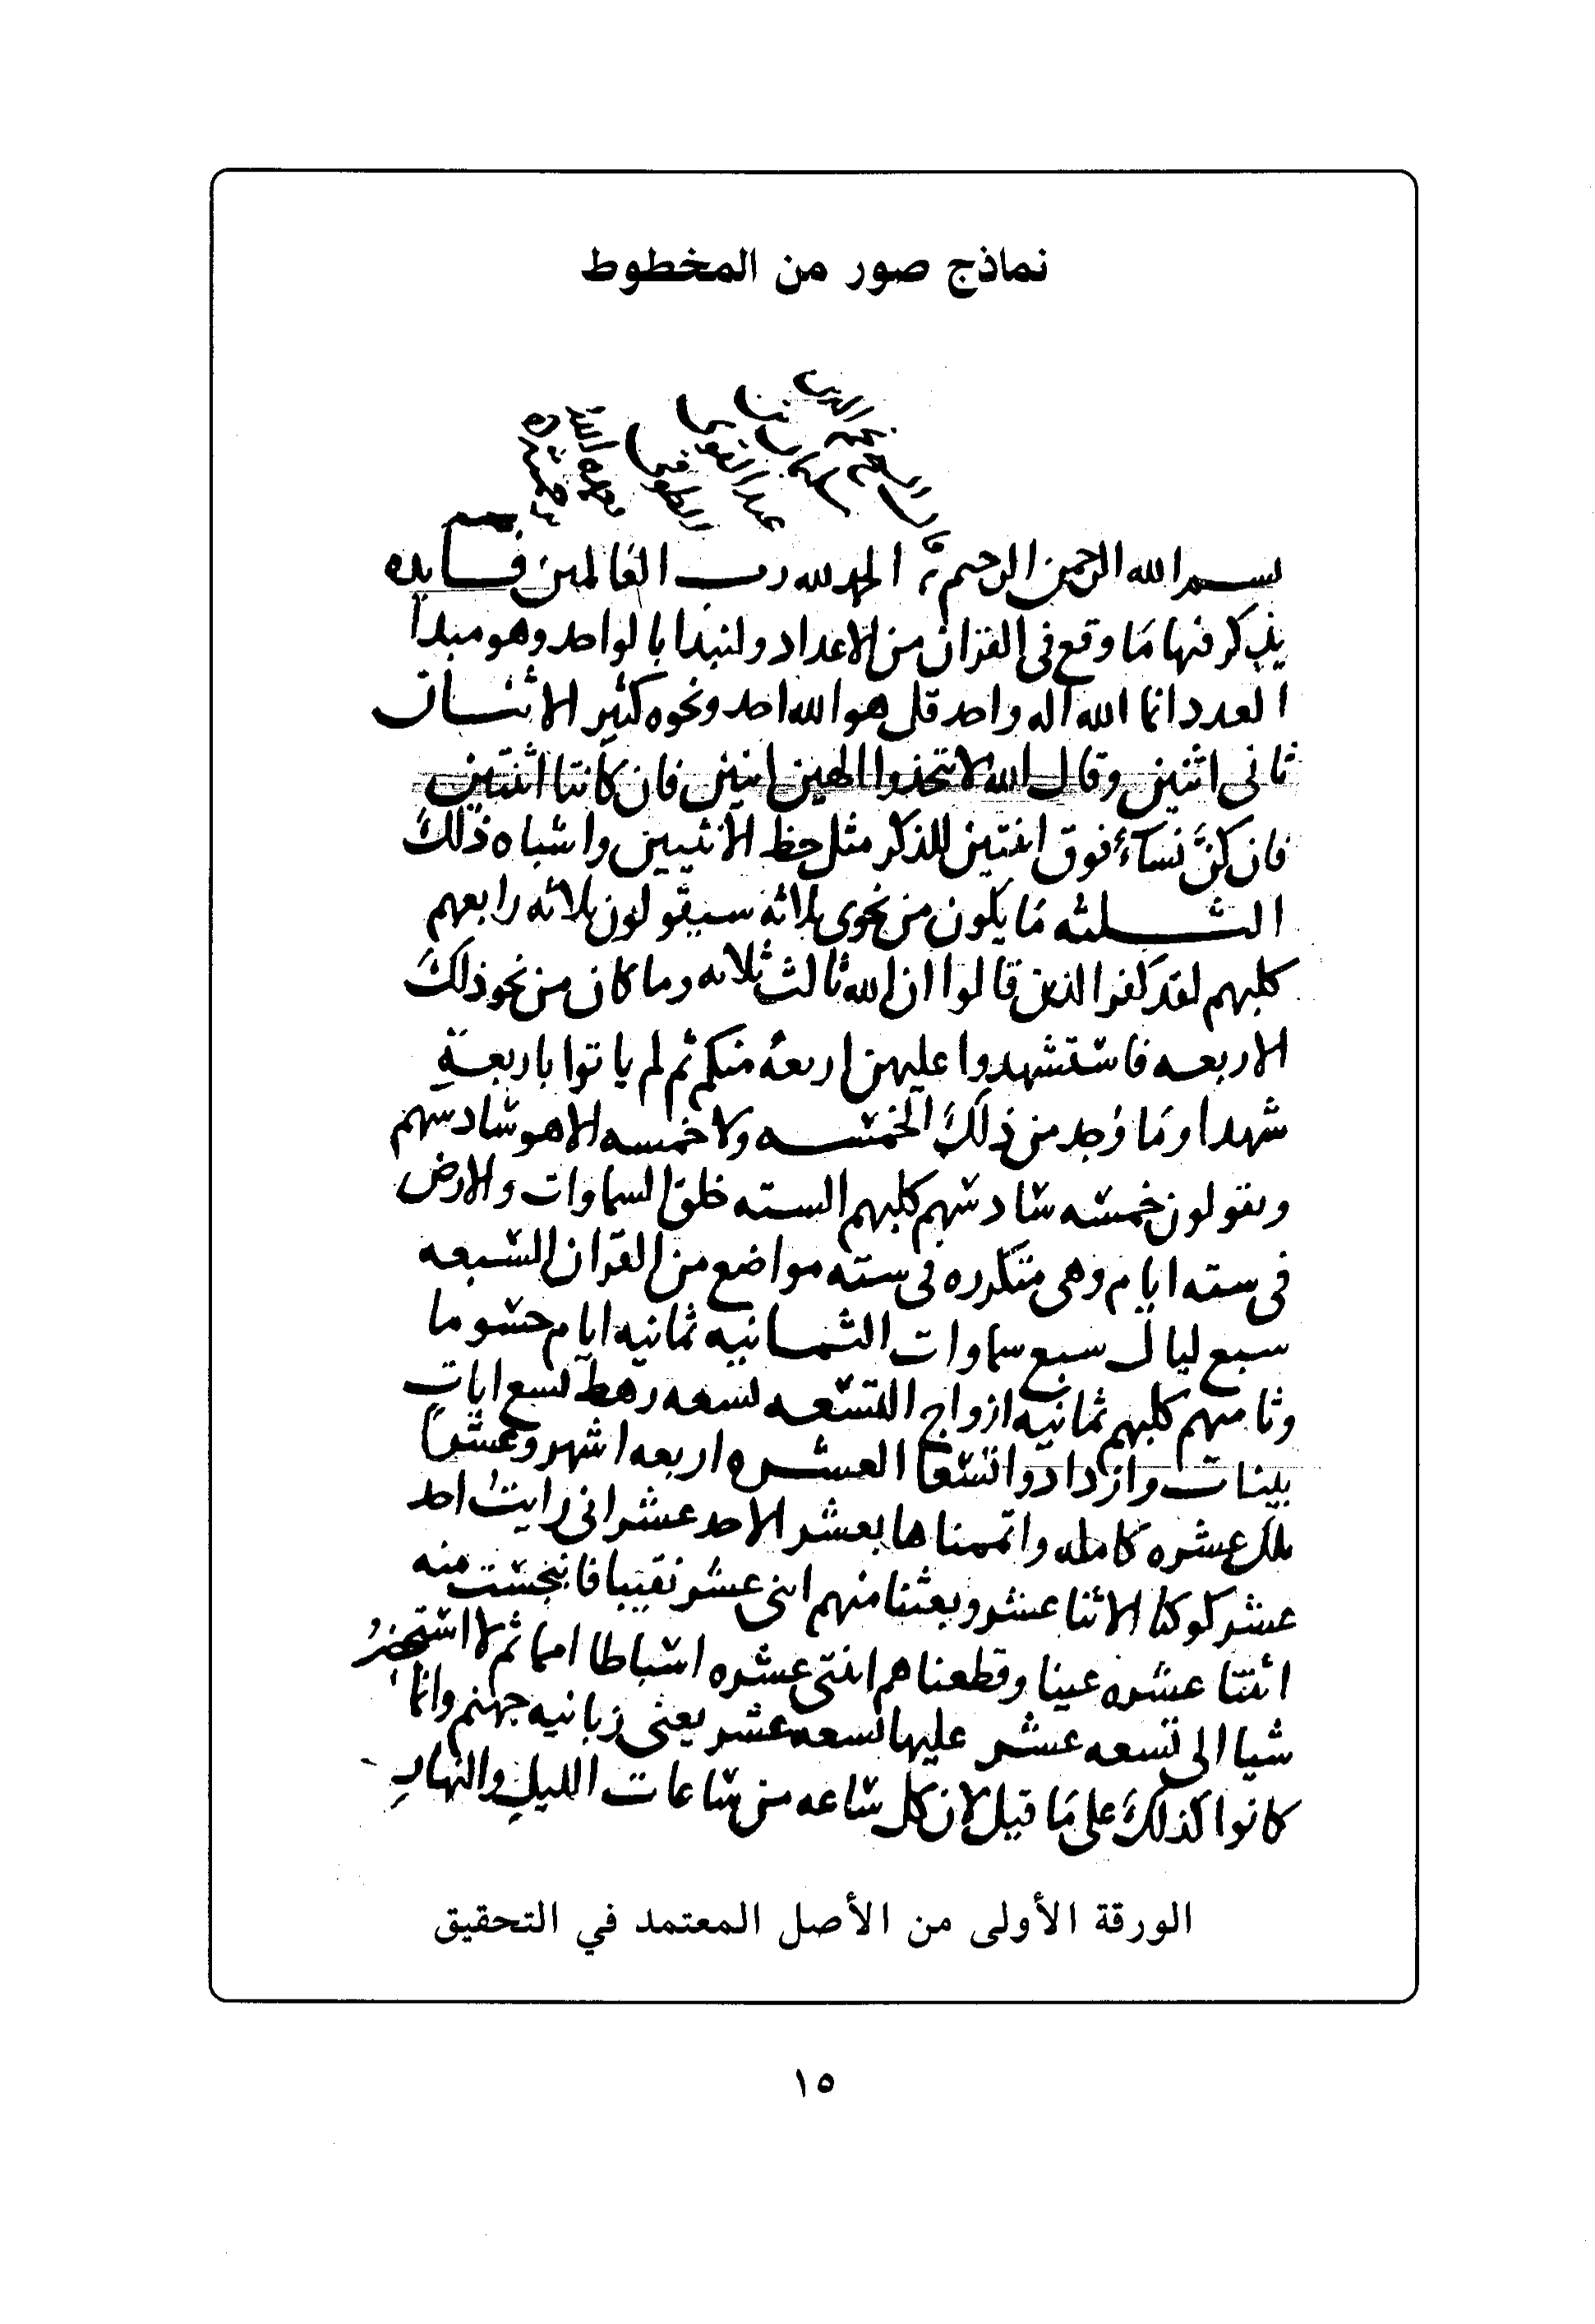 نماذج صور من المخطوط
قال الشيخ نجم الدين
سليمان بن
عبد القوى
الطوفى
تغمده الله
برحمته
بسم الله الرحمن الرحيم الحمد لله رب العالمين فايده
يذكر فيها مَا وقع فى القران من الاعداد ولنبدا بالواحد وهو مبدأ
العدد انما الله اله واحد قل هو الله احد ونحوه كثير الاثنان
ثانى اثنين وقال الله لا تتخذوا الهين اثنين فان كانتا اثنتين
فان كنَّ نسآءً فوق اثنتين للذكر مثل حظ الانثيين واشباه ذلكَ
الثلثه مَا يكون من نجوى ثلاثة سيقولون ثلاثه رابعهم
كلبهم لقد كفر الذين قالوا ان الله ثالث ثلاثه وما كان من نحو ذلكَ
الاربعه فاستشهدوا عليهن اربعة منكم ثم لم ياتوا باربعةِ
شهدا ومَا وُجد من ذلكَ الخمسه ولا خمسه الا هو سادسهم
ويقولون خمسه سادسهم كلبهم السته خلق السماوات والارض
فى سته ايام وهى متكرره فى سته مواضع من القران السبعه
سبع ليال سبع سماوات الثمانيه ثمانيه ايام حسوما
وثامنهم كلبهم ثمانيه ازواج التسعه تسعه رهط تسع ايات
بينات وازدادوا تسعا العشره اربعه اشهر وعشراً
تلك عشره كامله واتممناها بعشر الاحد عشر انى رايت احد
عشر كوكبا الاثنا عشر وبعثنا منهم اثنى عشر نقيبا فانبجست منه
اثنتا عشره عينا وقطعناهم اثنتى عشره اسباطا امما ثم لا استحضرُ
شيا الى تسعه عشر عليها تسعه عشر يعنى زبانيه جهنم وانما
كانوا كذلكَ على مَا قيل لان كل ساعه من ساعات الليلِ والنهارِ
الورقة الأولى من الأصل المعتمد في التحقيق
١٥